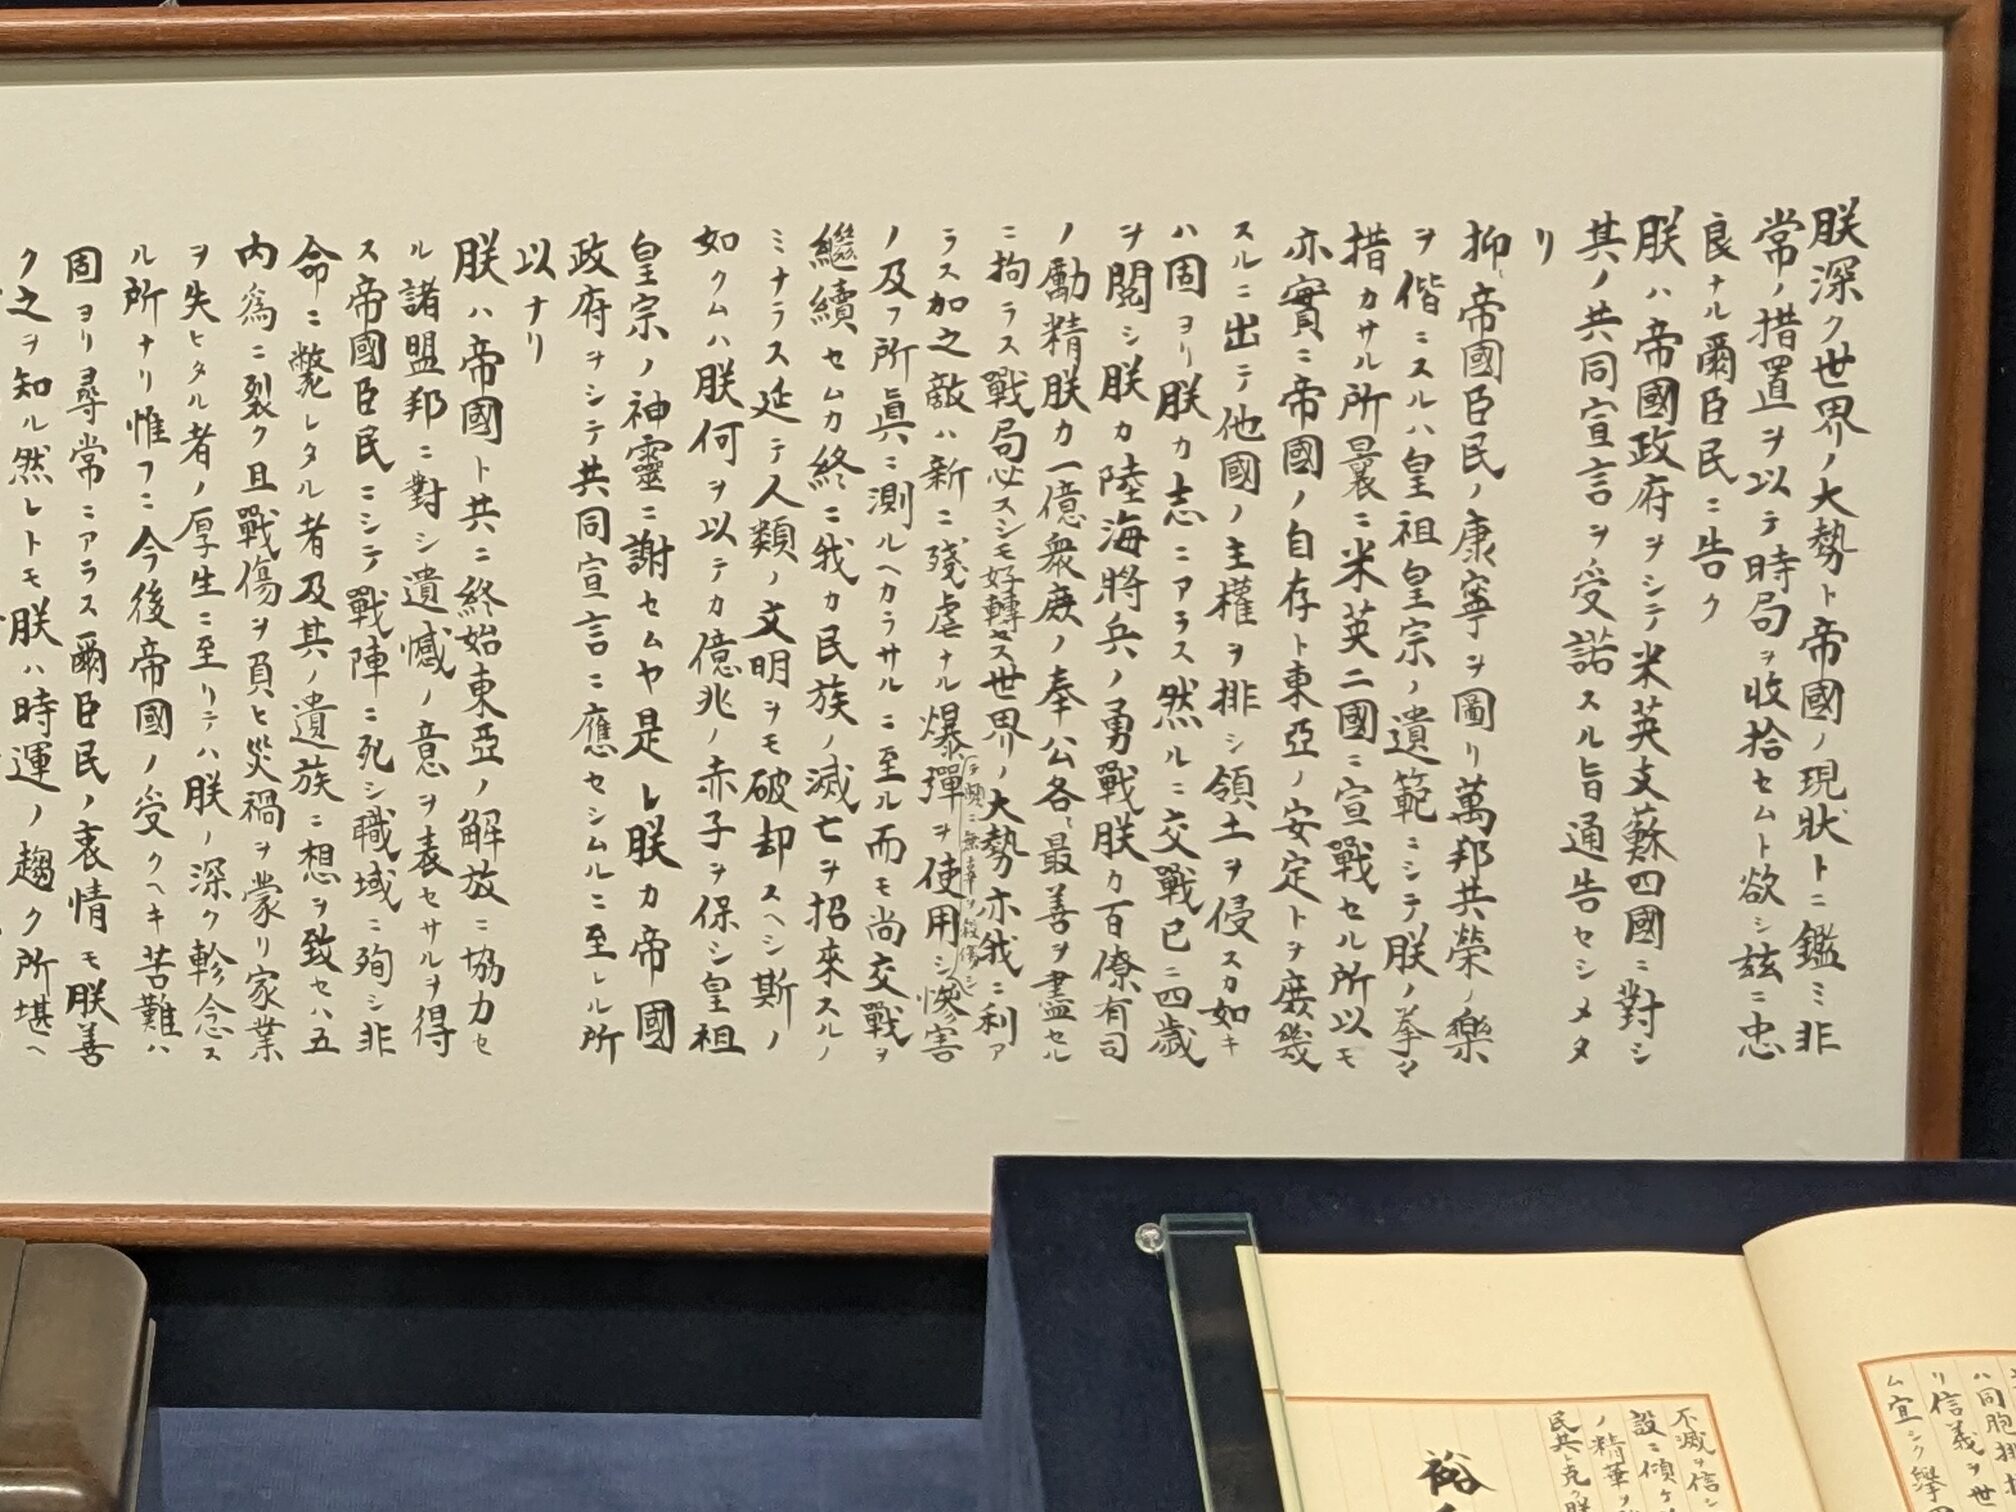 朕深ク世界ノ大勢ト帝國ノ現狀トニ鑑ミ非
常ノ措置ヲ以テ時局ヲ收拾セムト欲シ茲ニ忠
良ナル爾臣民ニ告ク
朕ハ帝國政府ヲシテ米英支蘇四國ニ對シ
其ノ共同宣言ヲ受諾スル旨通告セシメタ
リ
抑〻帝國臣民ノ康寧ヲ圖リ萬邦共榮ノ樂
ヲ偕ニスルハ皇祖皇宗ノ遺範ニシテ朕ノ拳々
措カサル所曩ニ米英二國ニ宣戰セル所以モ
亦實ニ帝國ノ自存ト東亞ノ安定トヲ庶幾
スルニ出テ他國ノ主權ヲ排シ領土ヲ侵スカ如キ
ハ固ヨリ朕カ志ニアラス然ルニ交戰已ニ四歲
ヲ閱シ朕カ陸海將兵ノ勇戰朕カ百僚有司
ノ勵精朕カ一億衆庶ノ奉公各〻最善ヲ盡セル
ニ拘ラス戰局必スシモ好轉セス世界ノ大勢亦我ニ利ア
ラス加之敵ハ新ニ殘虐ナル爆彈ヲ使用シ頻ニ無辜ヲ殺傷シ慘害
ノ及フ所眞ニ測ルヘカラサルニ至ル而モ尚交戰ヲ
繼續セムカ終ニ我カ民族ノ滅亡ヲ招來スルノ
ミナラス延テ人類ノ文明ヲモ破却スヘシ斯ノ
如クムハ朕何ヲ以テカ億兆ノ赤子ヲ保シ皇祖
皇宗ノ神靈ニ謝セムヤ是レ朕カ帝國
政府ヲシテ共同宣言ニ應セシムルニ至レル所
以ナリ
朕ハ帝國ト共ニ終始東亞ノ解放ニ協力セ
ル諸盟邦ニ對シ遺憾ノ意ヲ表セサルヲ得
ス帝國臣民ニシテ戰陣ニ死シ職域ニ殉シ非
命ニ斃レタル者及其ノ遺族ニ想ヲ致セハ五
內爲ニ裂ク且戰傷ヲ負ヒ災禍ヲ蒙リ家業
ヲ失ヒタル者ノ厚生ニ至リテハ朕ノ深ク軫念ス
ル所ナリ惟フニ今後帝國ノ受クヘキ苦難ハ
固ヨリ尋常ニアラス爾臣民ノ衷情モ朕善
ク之ヲ知ル然レトモ朕ハ時運ノ趨ク所堪ヘ
ハ同胞排
リ信義ヲ世
ム宜シク擧
不滅ヲ信シ
設ニ傾ケ
ノ精華ヲ
民其レ克ク朕
裕